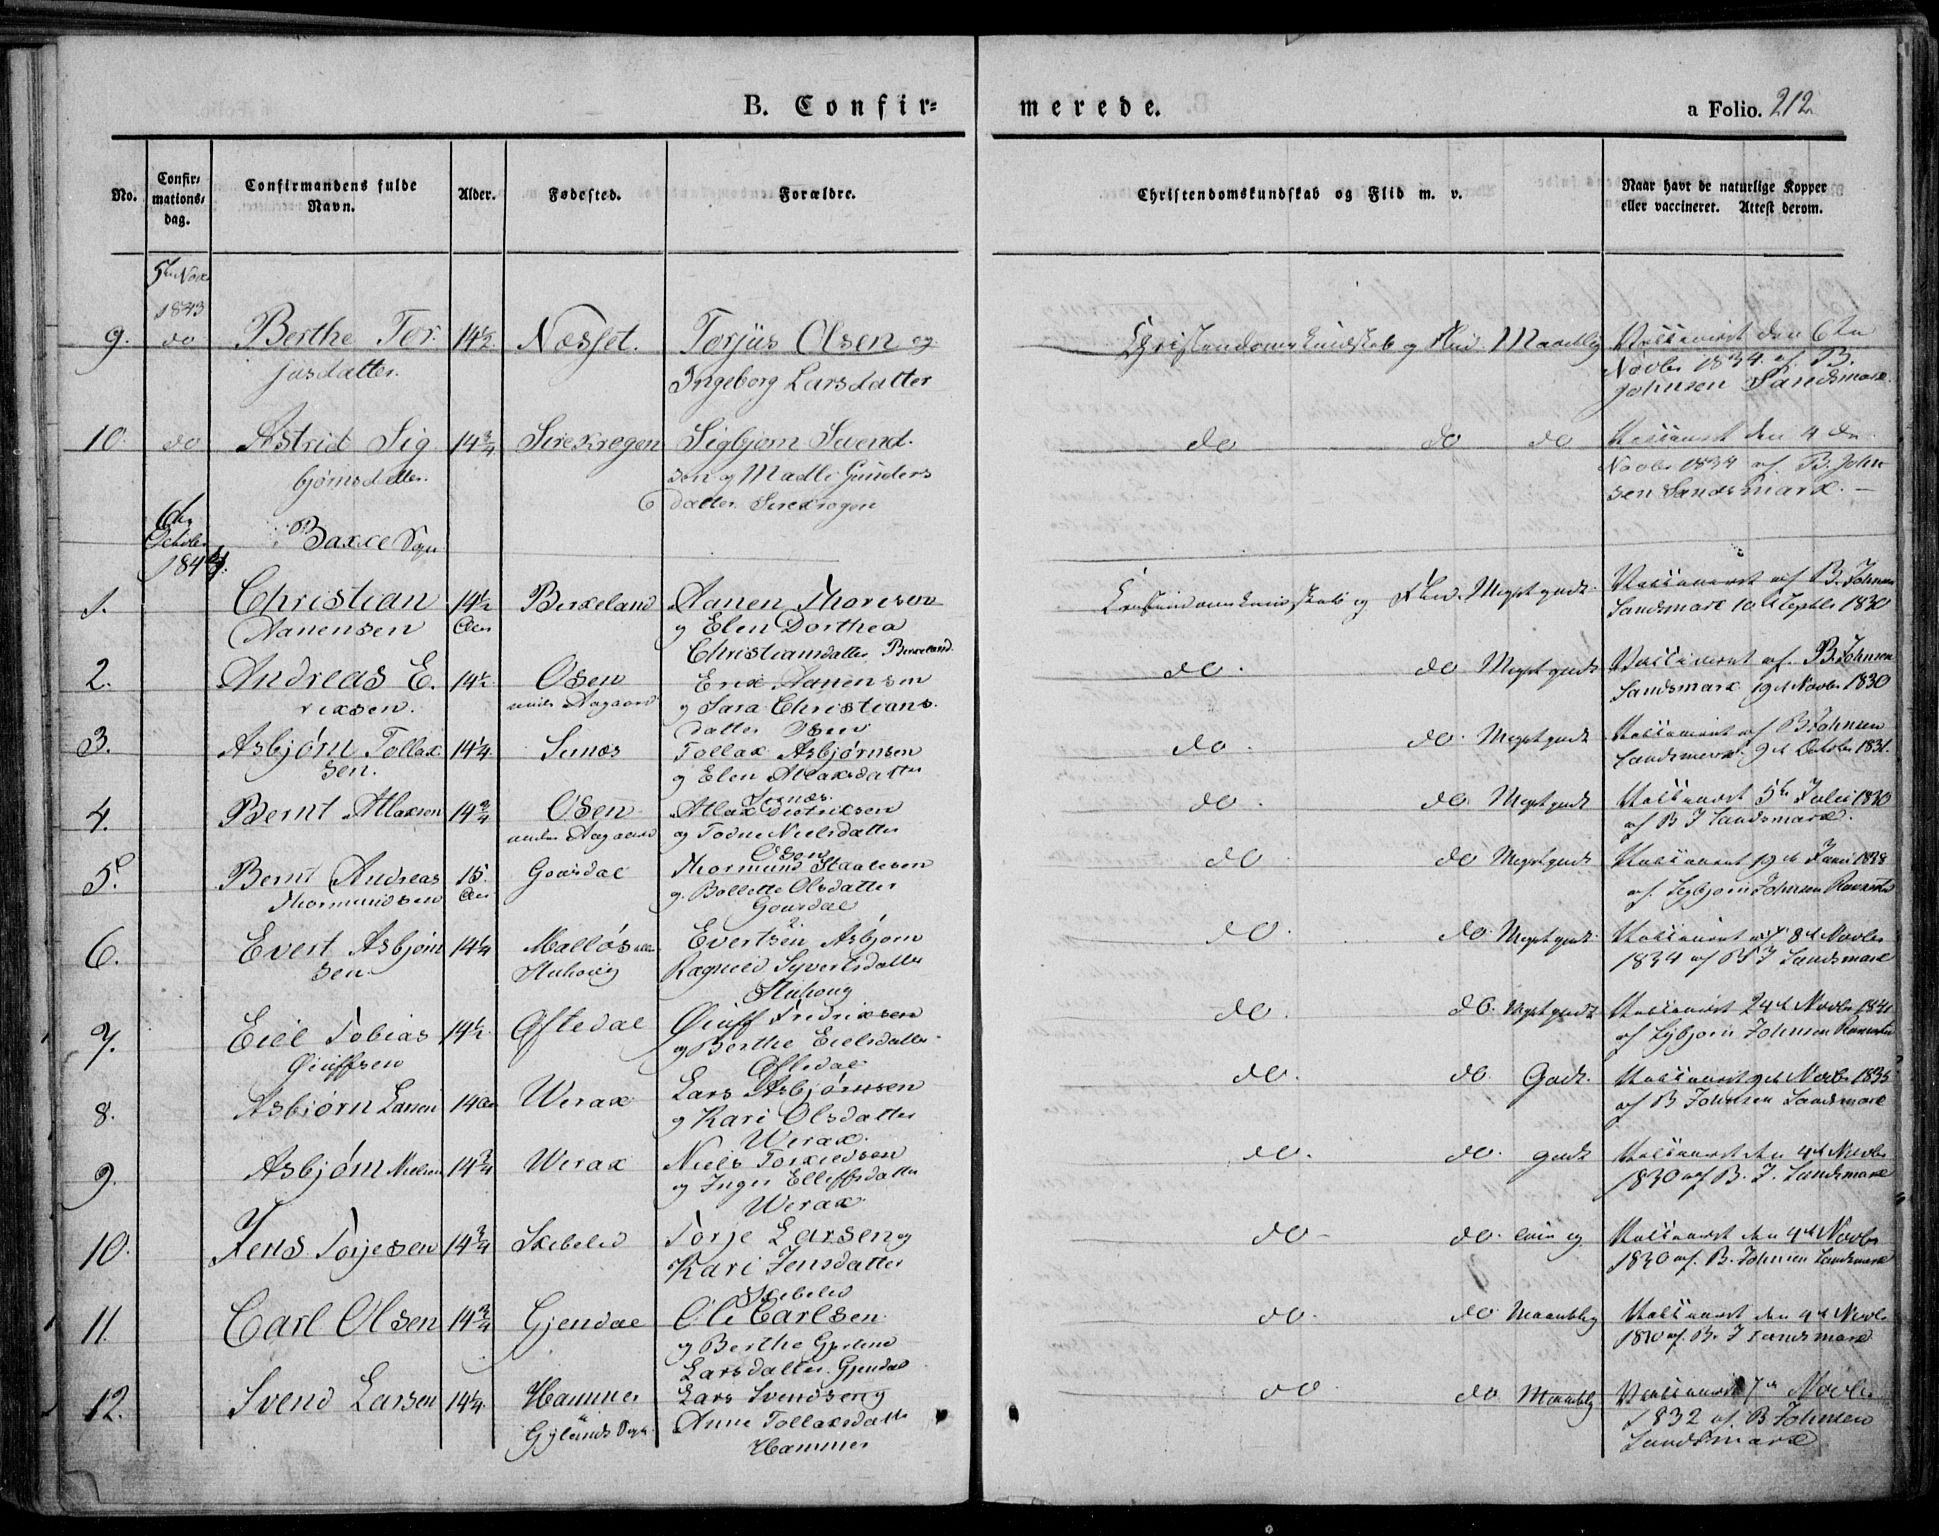 B. Confir=
merede.
a Folio. 212
No.
Confir=
mations=
dag.
Confirmandens fulde
Navn.
Alder.
Fødested.
Forældre.
Christendomskundskab og Flid m. v.
Naar havt de naturlige Kopper
eller vaccineret. Attest derom.
5te Nov
1843
9. do Berthe Tor 14½ Næsset. Torjus Olsen og Christendomskundskab og Flid Maadelig Vaccineret den 6te
jusdatter. Ingeborg Larsdatter Novbr 1834 af B.
Johnsen Sandsmark.
10. do Astrid Sig 14¾ Sirekrogen Sigbjørn Svend. do do do Vaccineret den 4de
bjørnsdatter. sen og Madli Gunders Novbr 1834 af B. John
datter Sirekrogen sen Sandsmark. —
6te
October
1844.
Bakke Sogn
1. Christian 14½ Birkeland Aanen Thoresen Christendomskundskab og Flid. Meget godt. Vaccineret af B. Johnsen
Aanensen Aar og Elen Dorthea Sandsmark 10 Septbr 1830
Christiansdatter Birkeland
2. Andreas E. 14½ Osen Erik Aanensen do. do Meget godt Vaccineret af B. Johnsen
riksen. under Aagaard og Sara Christians Sandsmark 19d Novbr 1830
datter Osen
3. Asbjørn Tollak 14¼ Sinnes Tollak Asbjørnsen do. do. Meget godt Vaccineret af B Johnsen
sen. og Elen Atlaksdatter Sandsmark 9d Octobr 1831.
Sinnes.
4. Bernt Atlaksen 14¾ Osen Atlak Dideriksen do. do Meget godt Vaccineret 5te Julii 1830
under Aagaard og Todne Nielsdatter af B J Sandsmark.
Osen
5. Bernt Andreas 15. Gaarsdal Thormund Staalesen do do Meget godt Vaccineret 19d Juni 1838
Thormundsen Aar og Bollette Olsdatter af Sigbjørn Johnsen
Gaarsdal
6. Evert Asbjørn 14¼ Evertsen Asbjørn do. do Meget godt Vaccineret 8d Novbr
sen Ragnild Syvertsdatter 1834 af B J Sandsmark
7. Eiel Tobias 14½ Øftedal Fredriksen do. do. Meget godt Vaccineret 24d Novbr
og Berthe Eielsdatter af Sigbjørn Johnsen
Øftedal
8. Asbjørn Larsen 14 Aar Werak Lars Asbjørnsen do. do. Godt. Vaccineret 9d Novbr 1835
og Kari Olsdatter af B Johnsen Sandsmark
Werak.
9. Asbjørn Nielsen 14¾ Werak Niels Torkildsen do. do. godt Vaccineret den 4d Novbr
og Inger Elleffsdatter 1830 af B. J. Sandsmark
Werak
10. Jens Torjesen 14¾ Skebelid Torje Larsen og do do. Vaccineret den 4d Novbr
Kari Jensdatter 1830 af. B. Johnsen Sandsmark
Skebelid
11 Carl Olsen 14¾ Gjendal Ole Carlsen do. do Maadelig Vaccineret den 4d Novbr
og Berthe Gjertine 1830 af. B. J Sandsmark
Larsdatter. Gjendal
12. Svend Larsen 14¼. Hammer Lars Svendsen og do do Maadelig Vaccineret 7de Novbr
Gylands Sogn. Anne Tollaksdatter 1832 af. B Johnsen
Hammer Sandsmark